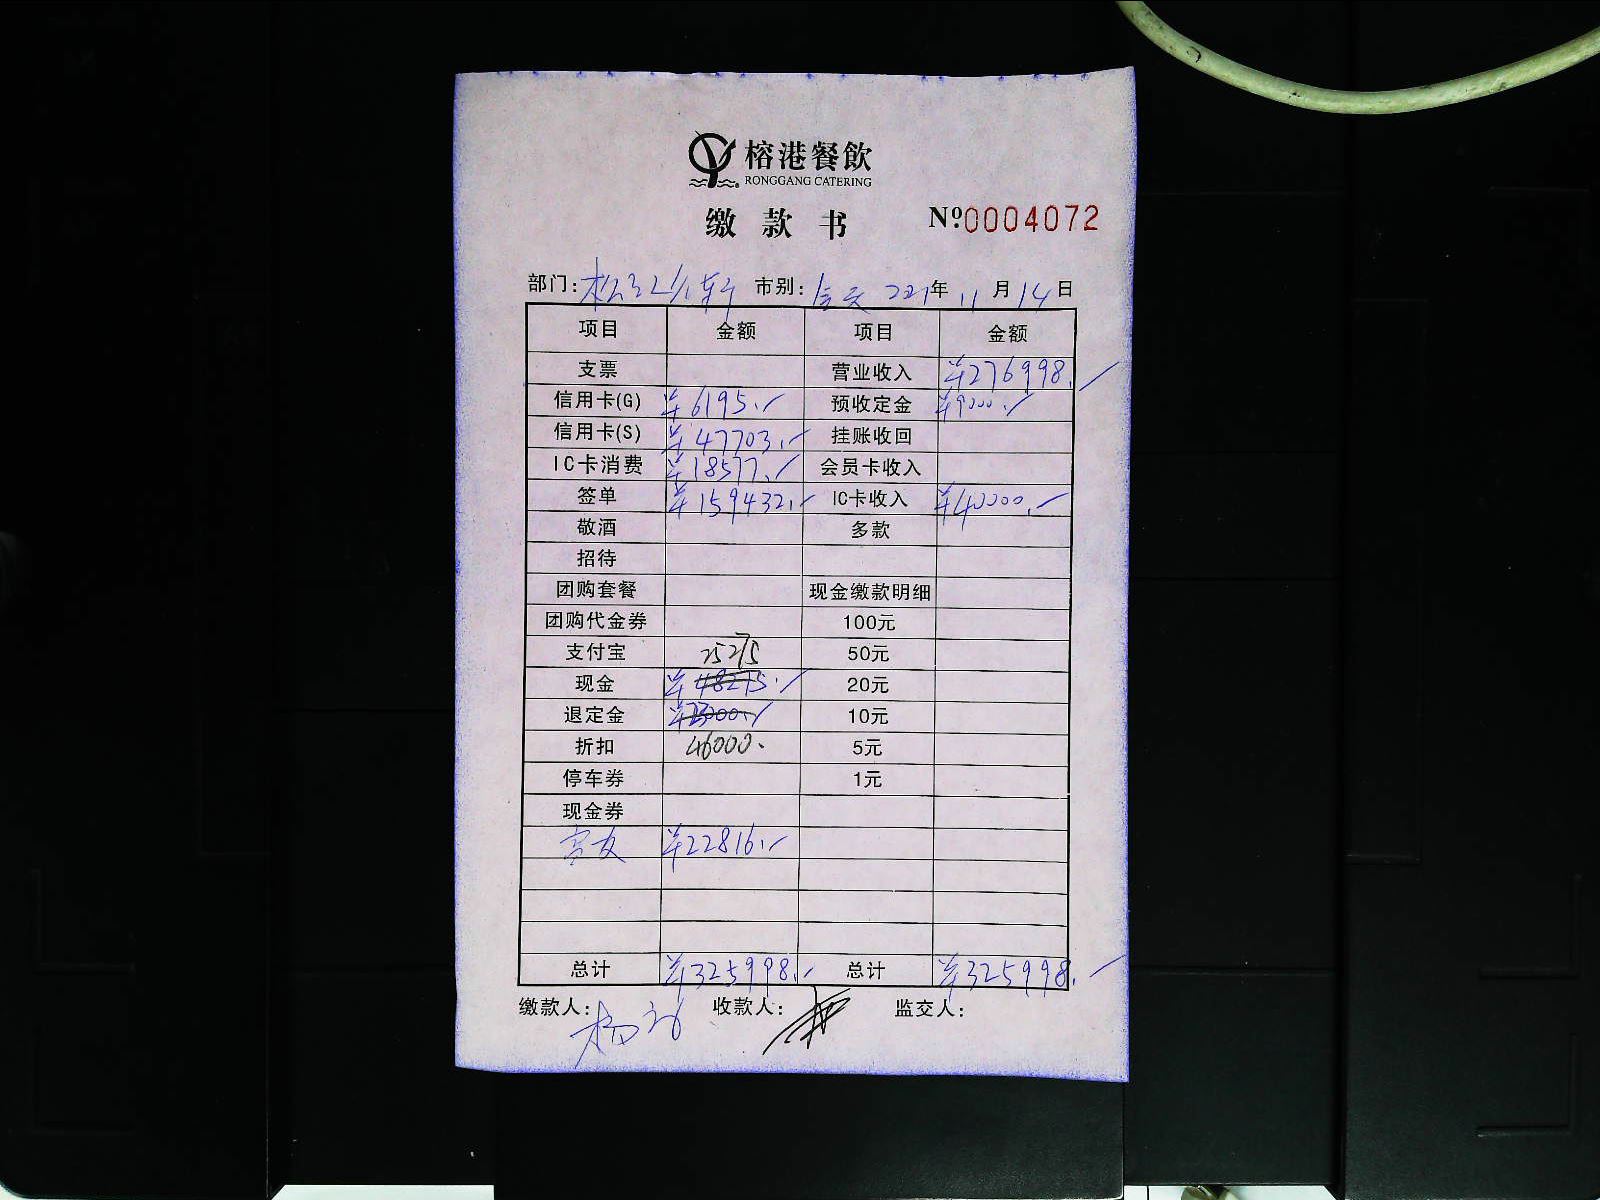 榕港餐飲
RONGGANG CATERING
缴款书 №0004072
部门: 市别:全天 2021年11月14日
项目 金额 项目 金额
支票 营业收入 ¥276998.
信用卡(G) ¥6195. 预收定金 ¥9000.
信用卡(S) ¥47703. 挂账收回
IC卡消费 ¥18577. 会员卡收入
签单 ¥159432. IC卡收入 ¥40000.
敬酒 多款
招待
团购套餐 现金缴款明细
团购代金券 100元
支付宝 25275 50元
现金 ¥48275. 20元
退定金 ¥23000. 10元
折扣 46000. 5元
停车券 1元
现金券
¥22816.
总计 ¥325998. 总计 ¥325998.
缴款人: 收款人: 监交人: